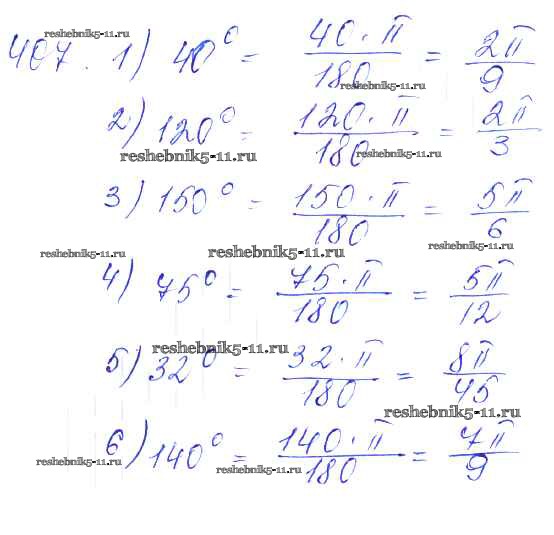 reshebnik5-11.ru
407. 1) 40° = 40·π/180 = 2π/9
reshebnik5-11.ru
2) 120° = 120·π/180 = 2π/3
reshebnik5-11.ru reshebnik5-11.ru
3) 150° = 150·π/180 = 5π/6
reshebnik5-11.ru reshebnik5-11.ru reshebnik5-11.ru
4) 75° = 75·π/180 = 5π/12
reshebnik5-11.ru
5) 32° = 32·π/180 = 8π/45
reshebnik5-11.ru
6) 140° = 140·π/180 = 7π/9
reshebnik5-11.ru reshebnik5-11.ru